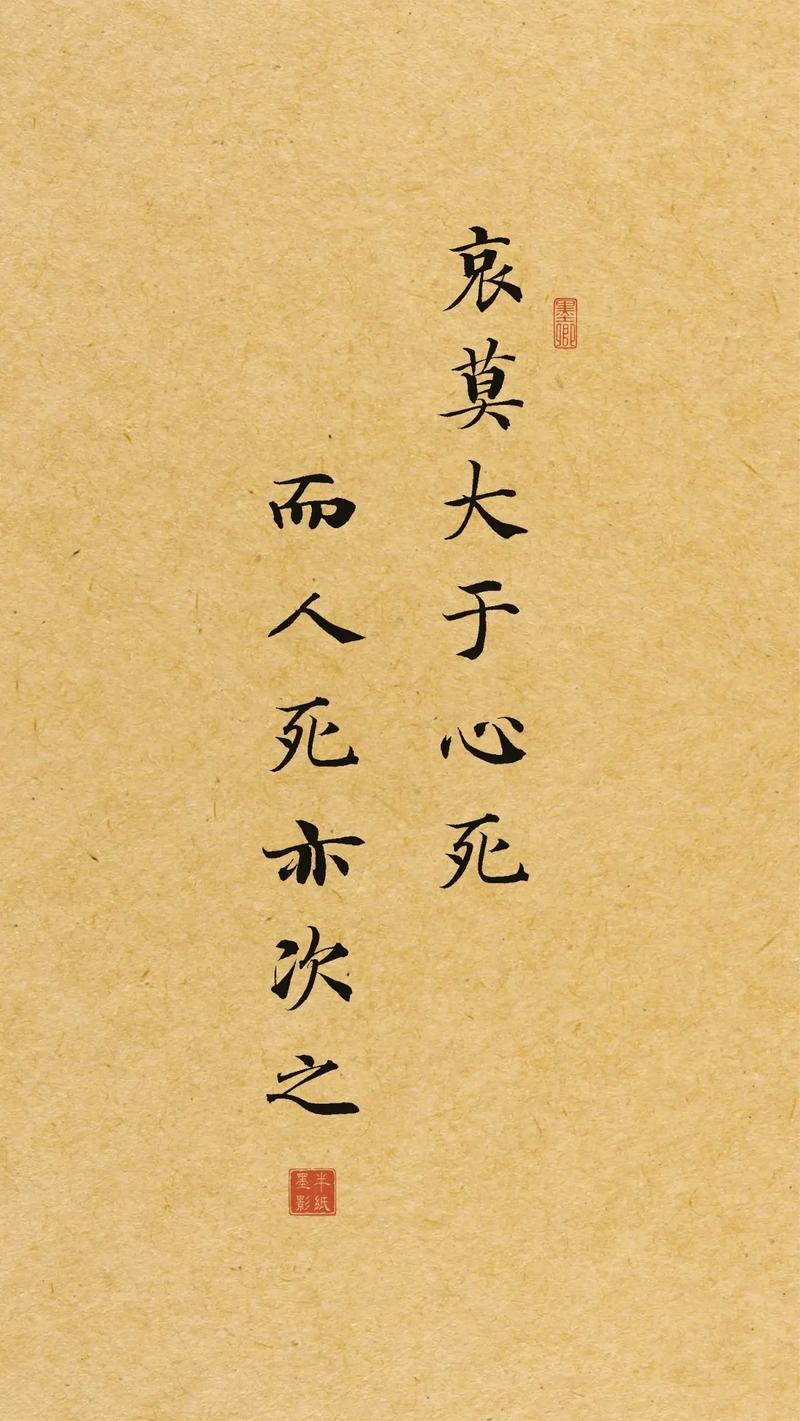 哀莫大于心死
而人死亦次之
墨卿
半紙墨影